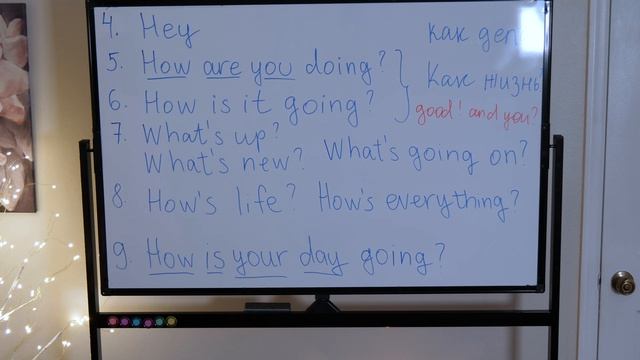 4. Hey
как дел
5. How are you doing?
Как жизнь
6. How is it going?
good! and you?
7. What's up?
What's new? What's going on?
8. How's life? How's everything?
9. How is your day going?